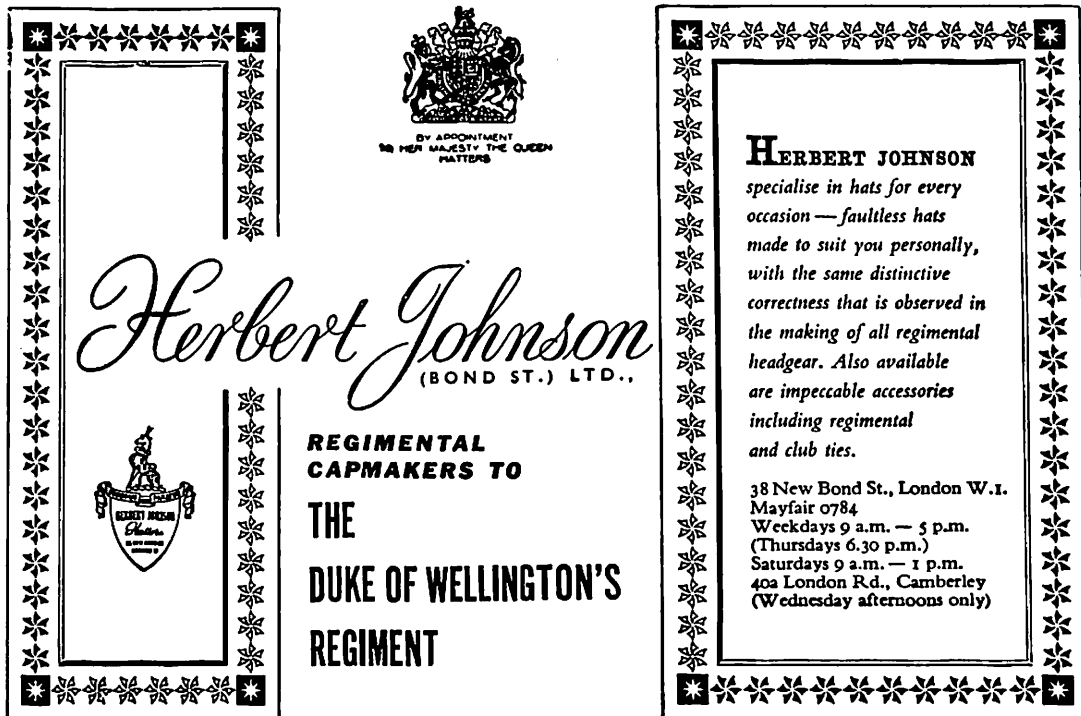 BY APPOINTMENT
TO HER MAJESTY THE QUEEN
HATTERS
Herbert Johnson
(BOND ST.) LTD.,
HERBERT JOHNSON
Hatters
REGIMENTAL
CAPMAKERS TO
THE
DUKE OF WELLINGTON'S
REGIMENT
HERBERT JOHNSON
specialise in hats for every
occasion — faultless hats
made to suit you personally,
with the same distinctive
correctness that is observed in
the making of all regimental
headgear. Also available
are impeccable accessories
including regimental
and club ties.
38 New Bond St., London W.1.
Mayfair 0784
Weekdays 9 a.m. — 5 p.m.
(Thursdays 6.30 p.m.)
Saturdays 9 a.m. — 1 p.m.
40a London Rd., Camberley
(Wednesday afternoons only)